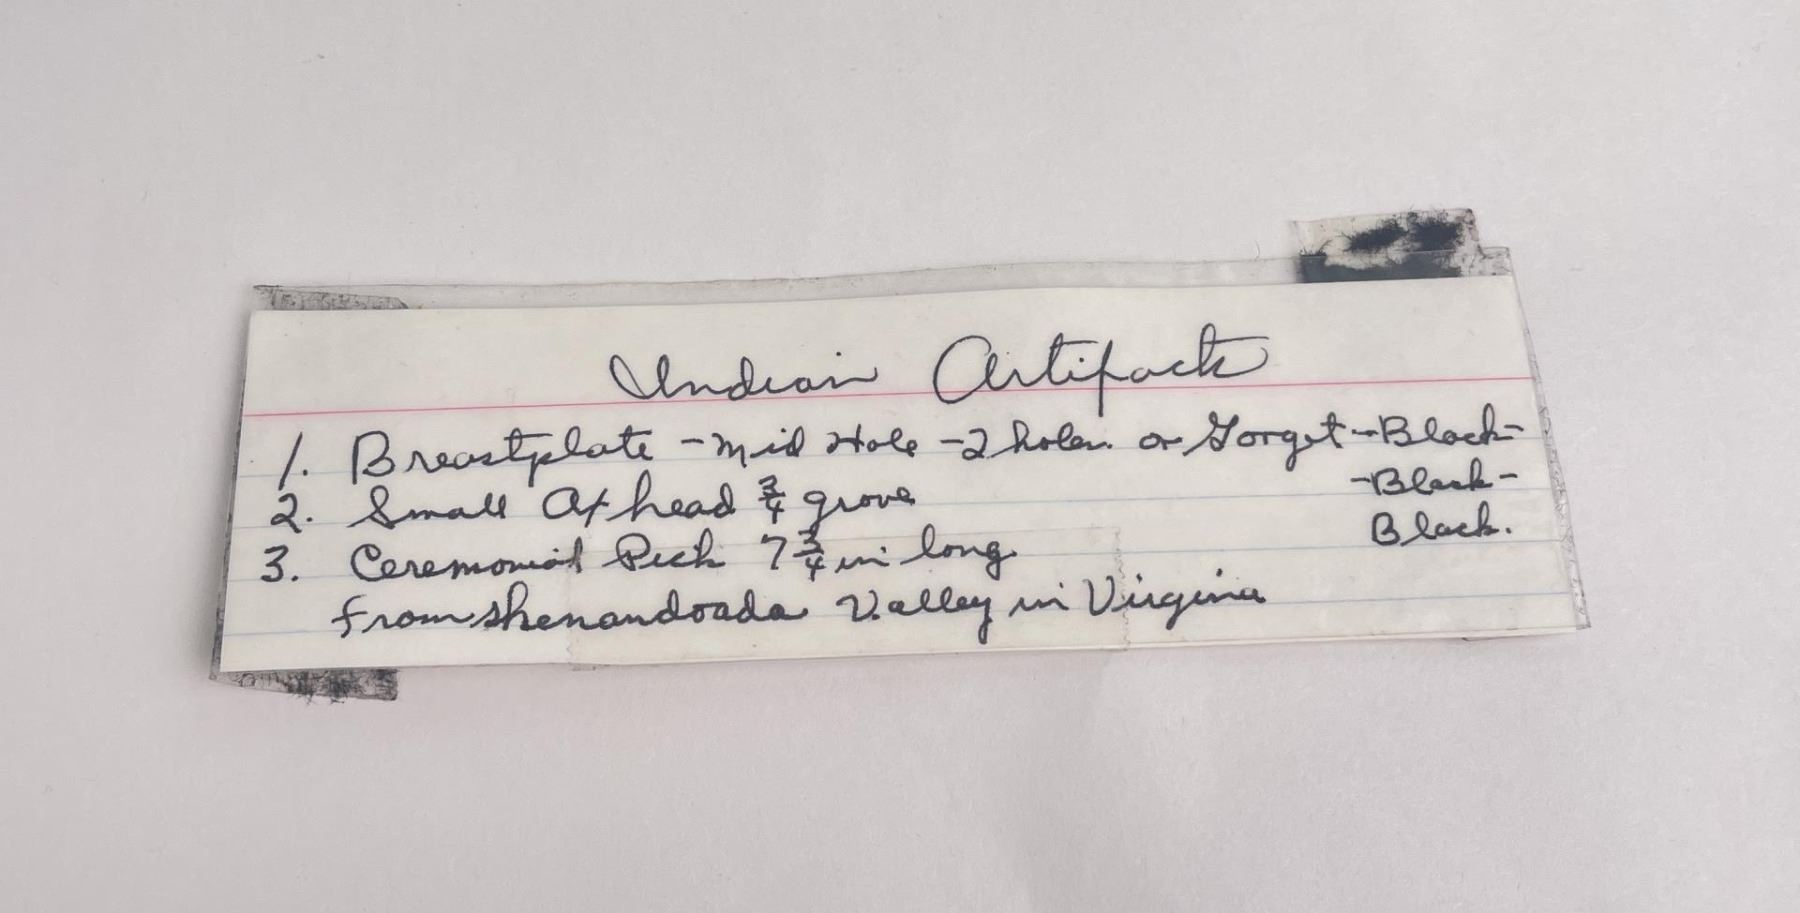 Indian Artifacts
1. Breastplate - Mid Hole - 2 holes or Gorget - Black -
2. Small Ax head 3/4 grove - Black -
3. Ceremonial Pick 7 3/4 in long Black.
from Shenandoada Valley in Virginia